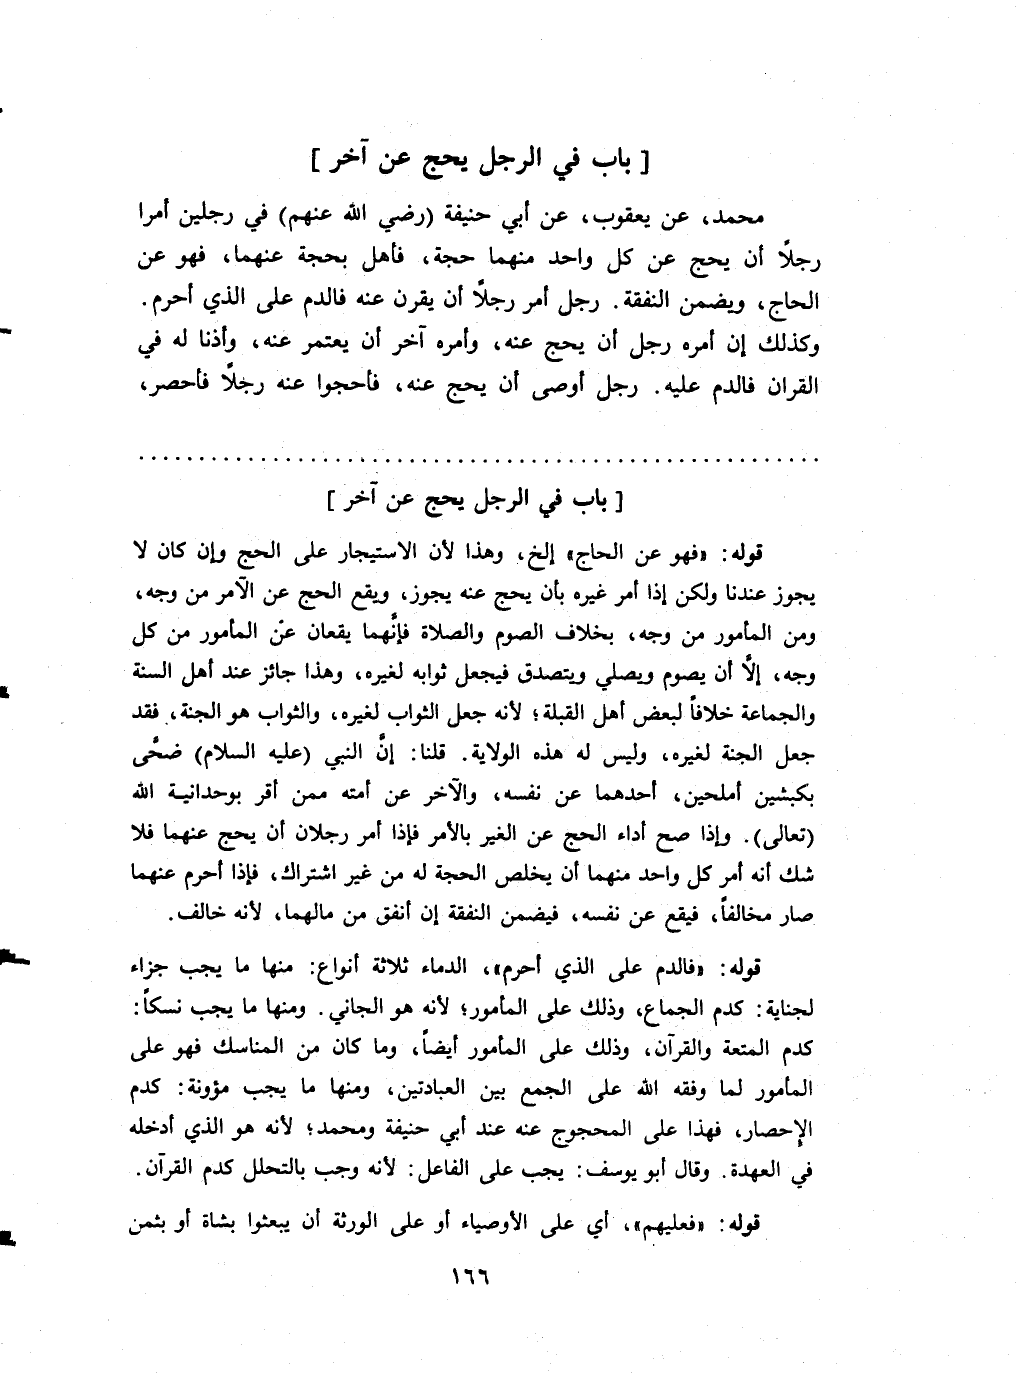 [ باب في الرجل يحج عن آخر ]
محمد، عن يعقوب، عن أبي حنيفة (رضي الله عنهم) في رجلين أمرا
رجلاً أن يحج عن كل واحد منهما حجة، فأهل بحجة عنهما، فهو عن
الحاج، ويضمن النفقة. رجل أمر رجلاً أن يقرن عنه فالدم على الذي أحرم.
وكذلك إن أمره رجل أن يحج عنه، وأمره آخر أن يعتمر عنه، وأذنا له في
القران فالدم عليه. رجل أوصى أن يحج عنه، فأحجوا عنه رجلاً فأحصر،
[ باب في الرجل يحج عن آخر ]
قوله: «فهو عن الحاج» إلخ، وهذا لأن الاستيجار على الحج وإن كان لا
يجوز عندنا ولكن إذا أمر غيره بأن يحج عنه يجوز، ويقع الحج عن الآمر من وجه،
ومن المأمور من وجه، بخلاف الصوم والصلاة فإنَّهما يقعان عن المأمور من كل
وجه، إلَّا أن يصوم ويصلي ويتصدق فيجعل ثوابه لغيره، وهذا جائز عند أهل السنة
والجماعة خلافاً لبعض أهل القبلة؛ لأنه جعل الثواب لغيره، والثواب هو الجنة، فقد
جعل الجنة لغيره، وليس له هذه الولاية. قلنا: إنَّ النبي (عليه السلام) ضحَّى
بكبشين أملحين، أحدهما عن نفسه، والآخر عن أمته ممن أقر بوحدانية الله
(تعالى). وإذا صح أداء الحج عن الغير بالأمر فإذا أمر رجلان أن يحج عنهما فلا
شك أنه أمر كل واحد منهما أن يخلص الحجة له من غير اشتراك، فإذا أحرم عنهما
صار مخالفاً، فيقع عن نفسه، فيضمن النفقة إن أنفق من مالهما، لأنه خالف.
قوله: «فالدم على الذي أحرم»، الدماء ثلاثة أنواع: منها ما يجب جزاء
لجناية: كدم الجماع، وذلك على المأمور؛ لأنه هو الجاني. ومنها ما يجب نسكاً:
كدم المتعة والقرآن، وذلك على المأمور أيضاً، وما كان من المناسك فهو على
المأمور لما وفقه الله على الجمع بين العبادتين، ومنها ما يجب مؤونة: كدم
الإحصار، فهذا على المحجوج عنه عند أبي حنيفة ومحمد؛ لأنه هو الذي أدخله
في العهدة. وقال أبو يوسف: يجب على الفاعل: لأنه وجب بالتحلل كدم القرآن.
قوله: «فعليهم»، أي على الأوصياء أو على الورثة أن يبعثوا بشاة أو بثمن
١٦٦